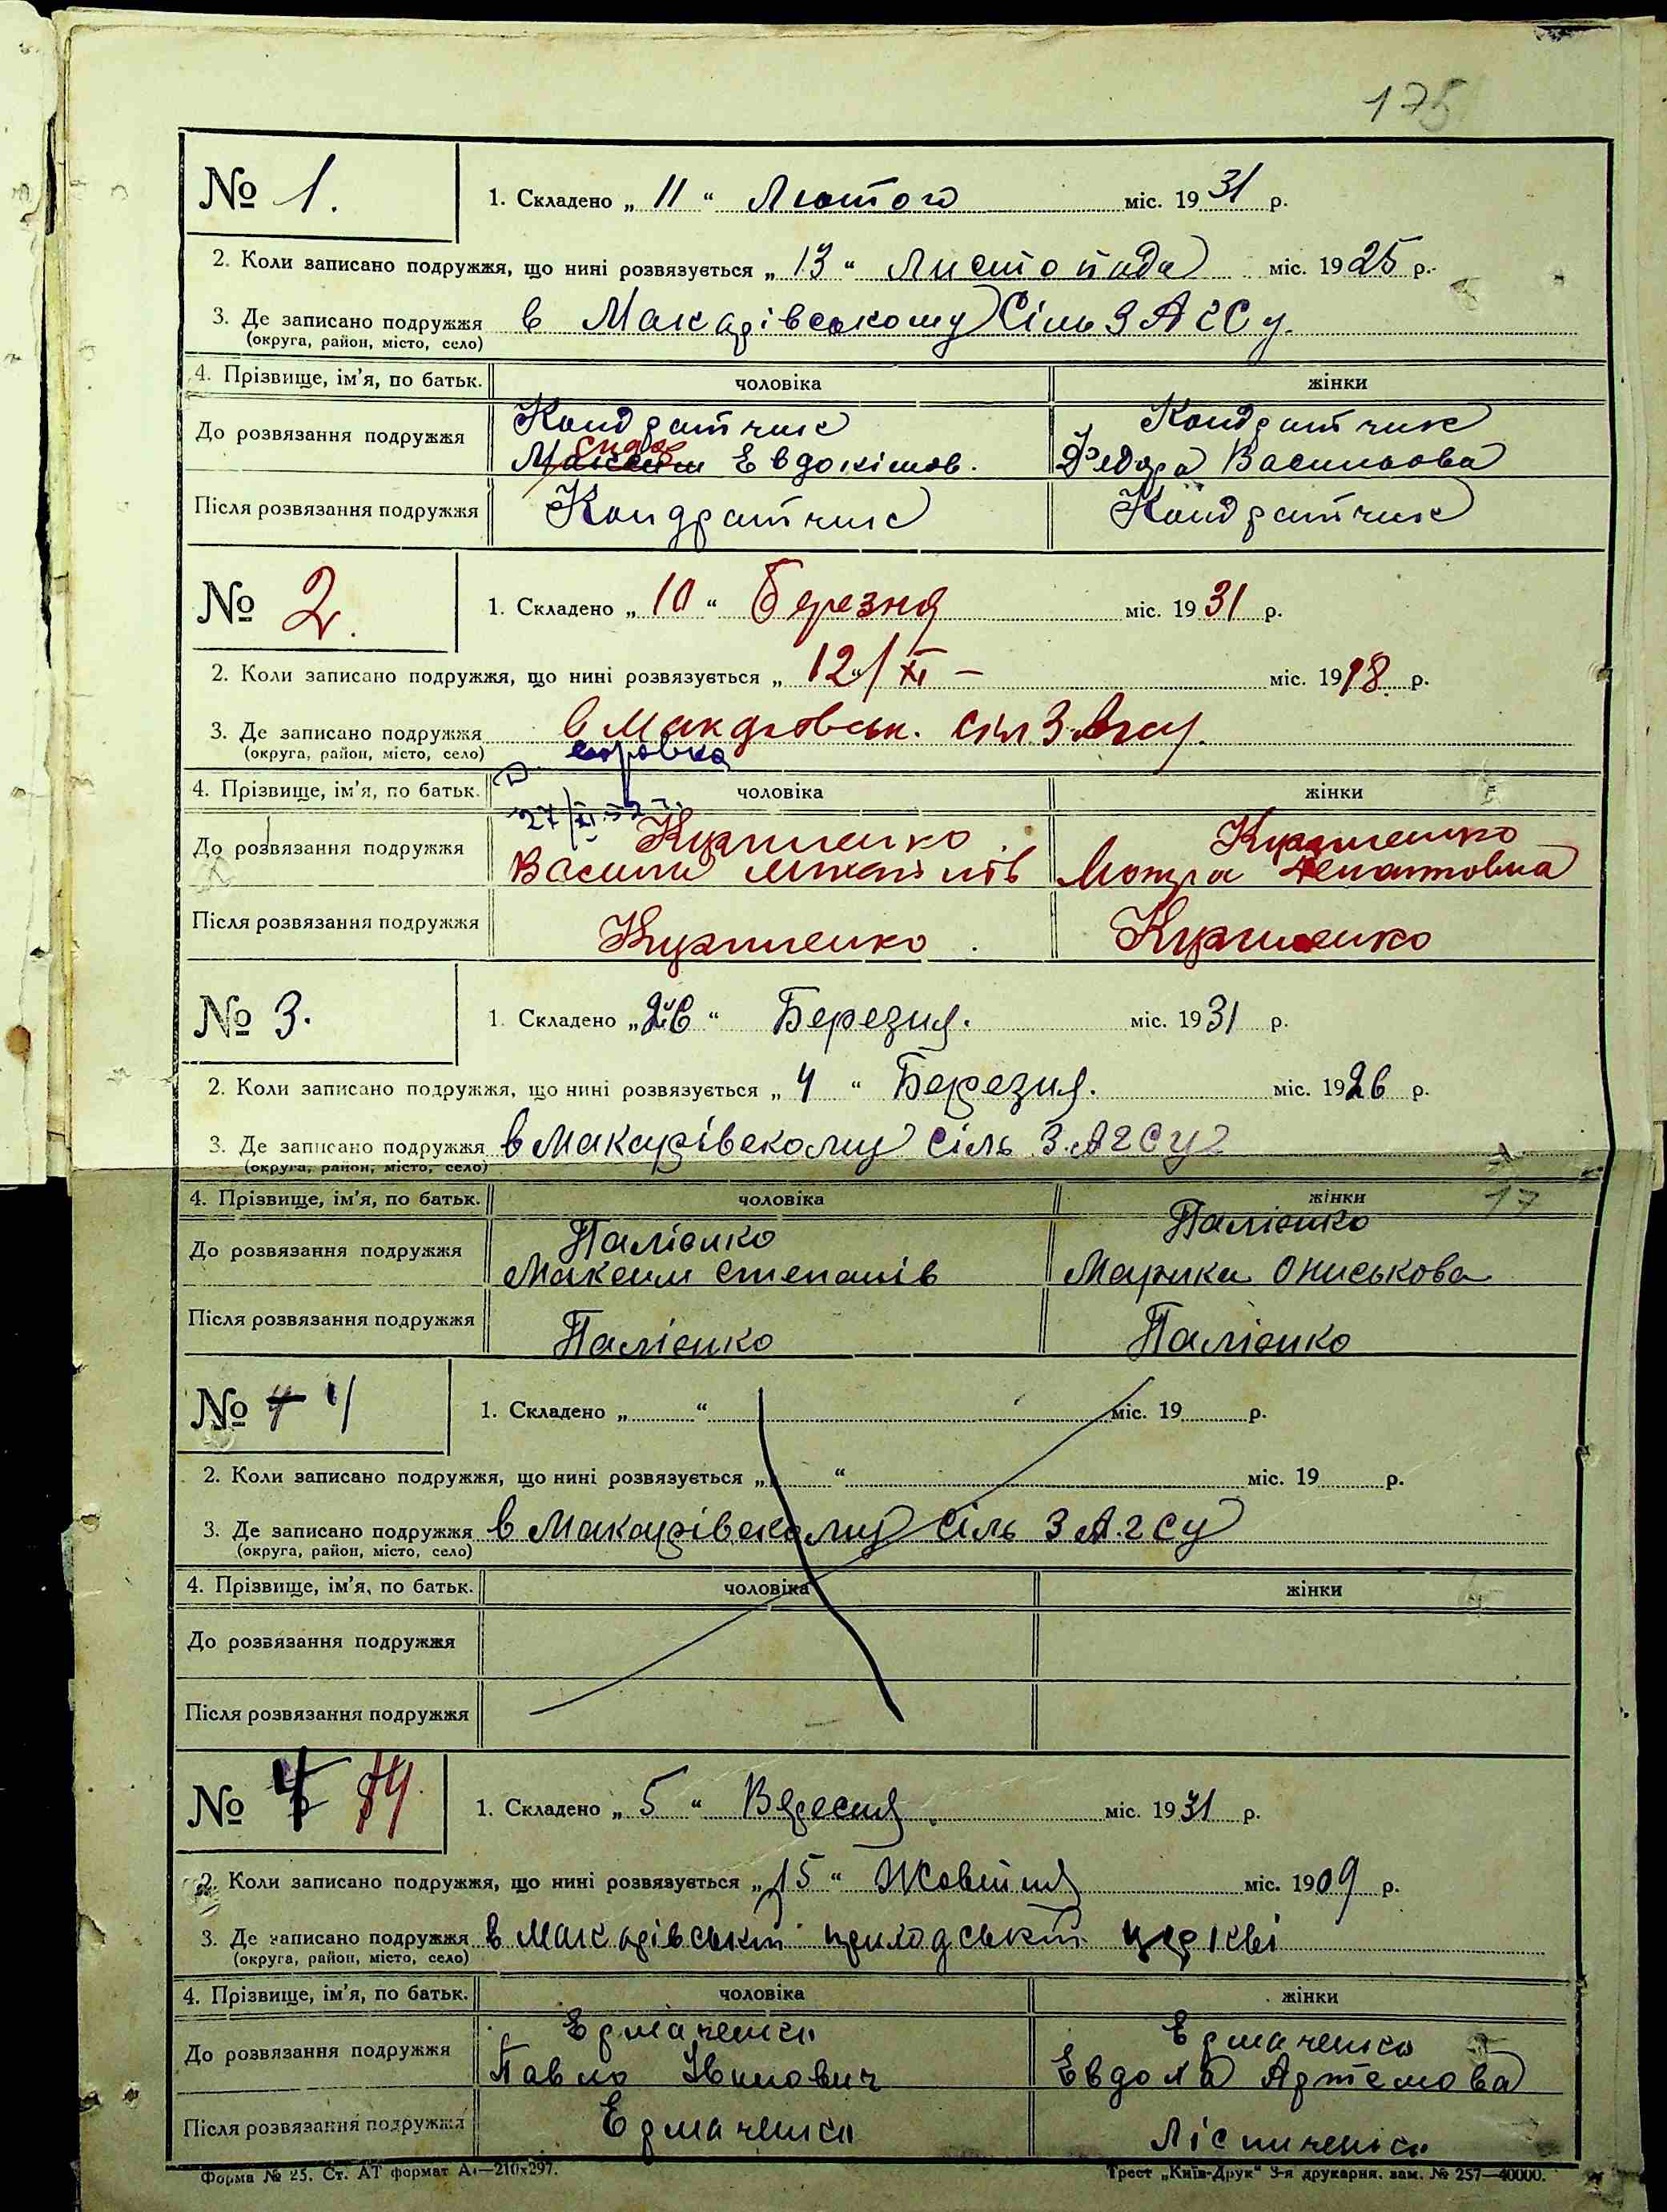 175
№ 1.
1. Складено „ 11 “ Лютого міс. 19 31 р.
2. Коли записано подружжя, що нині розвязується „ 13 “ Листопада міс. 19 25 р.
3. Де записано подружжя в Макарівському Сіль ЗАГСу.
(округа, район, місто, село)
4. Прізвище, ім’я, по батьк. чоловіка жінки
Кондратчик Кондратчик
До розвязання подружжя
Евдокімов. Федора Васильова
Після розвязання подружжя Кондратчик Кондратчик
№ 2.
1. Складено „ 10 “ Березня міс. 19 31 р.
2. Коли записано подружжя, що нині розвязується „ 12 “/XI — міс. 19 18 р.
3. Де записано подружжя в Макаровськ. сіл Загсу.
(округа, район, місто, село)
4. Прізвище, ім’я, по батьк. чоловіка жінки
До розвязання подружжя
Василь Мотря
Після розвязання подружжя
№ 3.
1. Складено „ 26 “ Березня. міс. 19 31 р.
2. Коли записано подружжя, що нині розвязується „ 4 “ Березня. міс. 19 26 р.
3. Де записано подружжя в Макарівскому сіль З.АГСу
(округа, район, місто, село)
17
4. Прізвище, ім’я, по батьк. чоловіка жінки
Палієнко Палієнко
До розвязання подружжя
Максим Степанів Марика Ониськова
Після розвязання подружжя Палієнко Палієнко
№ 4 4
1. Складено „ “ міс. 19 р.
2. Коли записано подружжя, що нині розвязується „ “ міс. 19 р.
3. Де записано подружжя в Макарівскому сіль ЗА.гСу
(округа, район, місто, село)
4. Прізвище, ім’я, по батьк. чоловіка жінки
До розвязання подружжя
Після розвязання подружжя
№ 4.
1. Складено „ 5 “ Вересня. міс. 19 31 р.
2. Коли записано подружжя, що нині розвязується „ 15 “ Жовтня міс. 19 09 р.
3. Де записано подружжя в Макарівській приходській церкві
(округа, район, місто, село)
4. Прізвище, ім’я, по батьк. чоловіка жінки
Ермаченко Ермаченко
До розвязання подружжя
Павло Іванович Евдоха Артемова
Після розвязання подружжя Ермаченко Лісниченко
Форма № 25. Ст. АТ формат А₄—210х297. Трест „Київ-Друк“ 3-я друкарня. зам. № 257—40000.